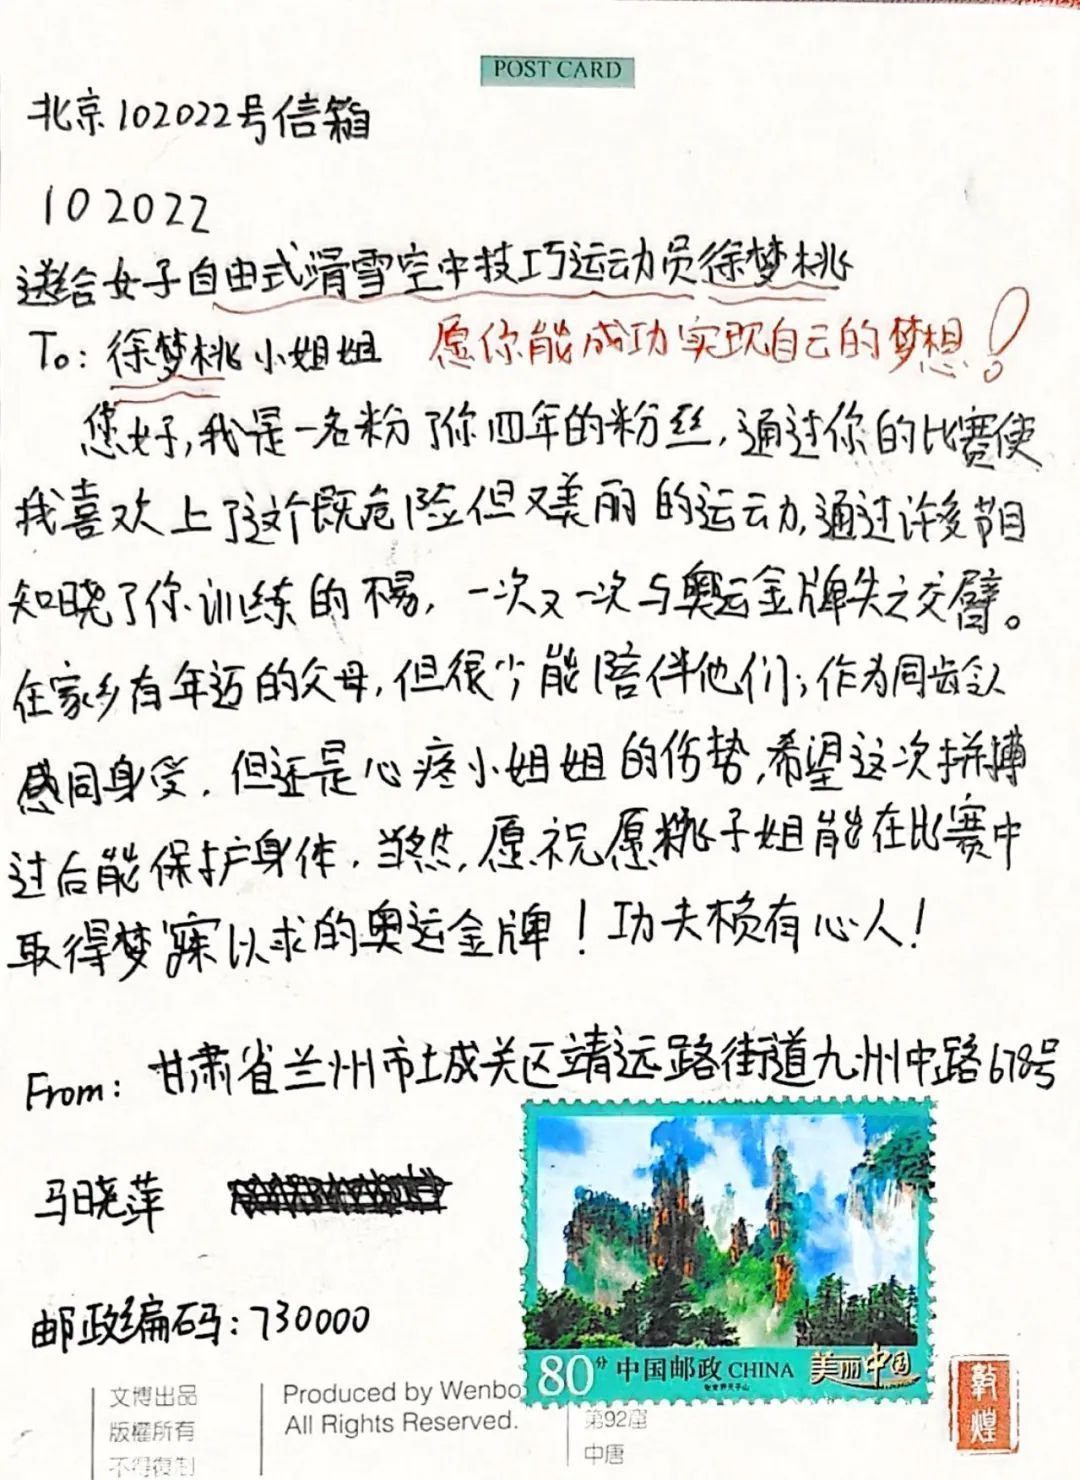 POST CARD
北京102022号信箱
102022
送给女子自由式滑雪空中技巧运动员徐梦桃
To: 徐梦桃小姐姐 愿你能成功实现自己的梦想！
您好，我是一名粉了你四年的粉丝，通过你的比赛使
我喜欢上了这个既危险但又美丽的运动，通过许多节目
知晓了你训练的不易，一次又一次与奥运金牌失之交臂。
在家乡有年迈的父母，但很少能陪伴他们；作为同龄人
感同身受，但还是心疼小姐姐的伤势，希望这次拼搏
过后能保护身体，当然，愿祝愿桃子姐能在比赛中
取得梦寐以求的奥运金牌！功夫不负有心人！
From: 甘肃省兰州市城关区靖远路街道九州中路678号
马晓萍
邮政编码：730000
80分 中国邮政 CHINA 美丽中国
文博出品
版權所有
不得復制
Produced by Wenbo
All Rights Reserved.
第92窟
中唐
敦煌